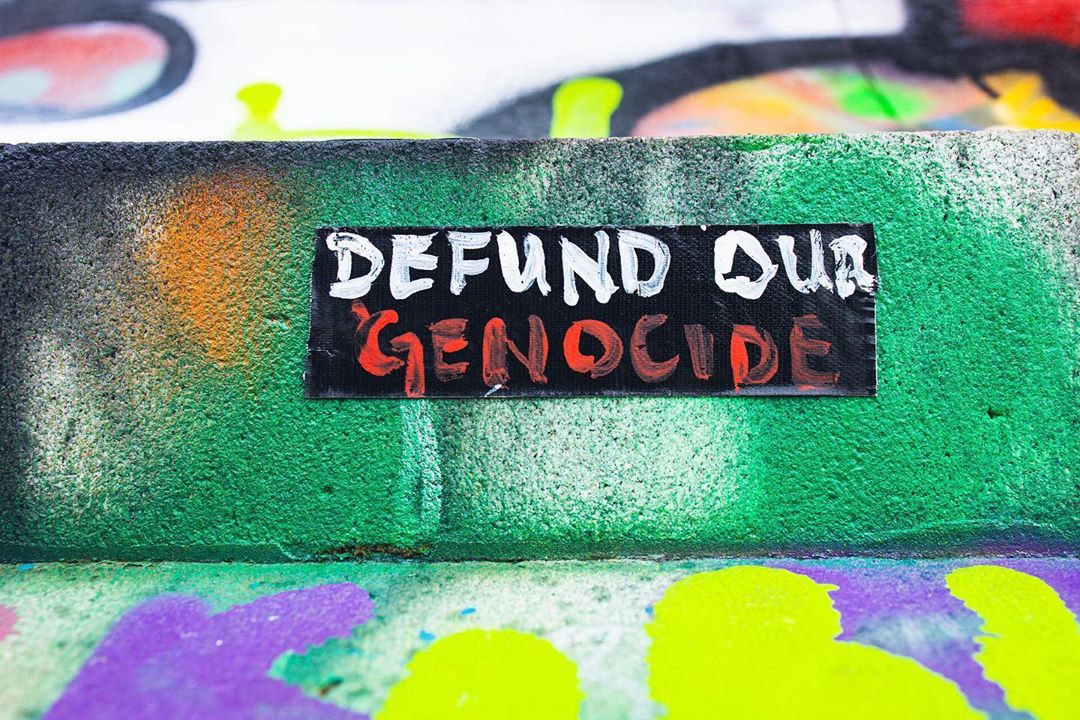 DEFUND OUR
GENOCIDE